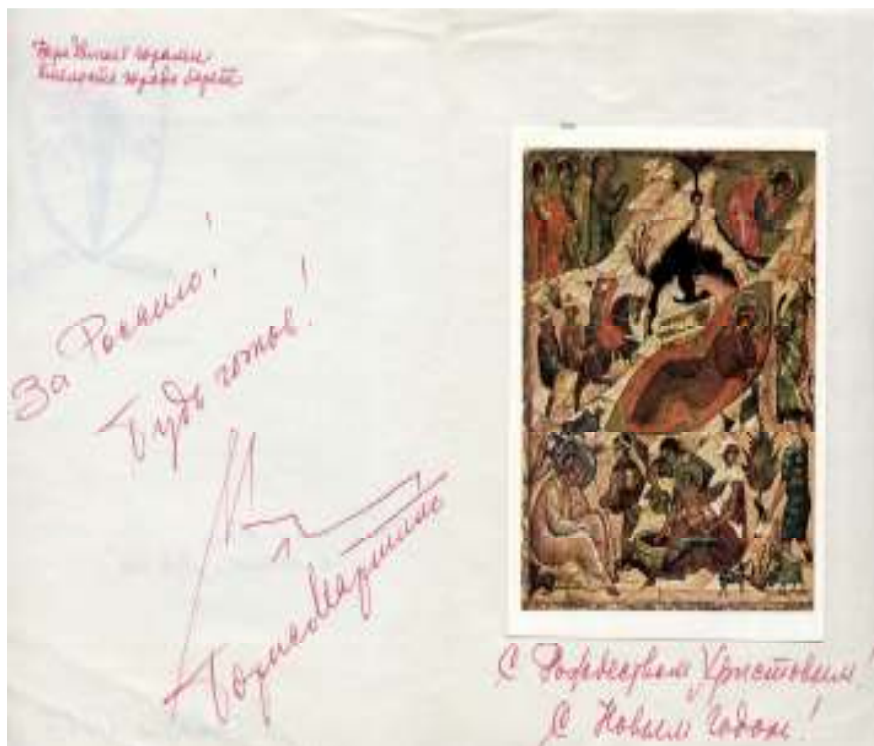 За Россию!
Будь готов!
Борис Мартино
С Рождеством Христовым!
С Новым Годом!